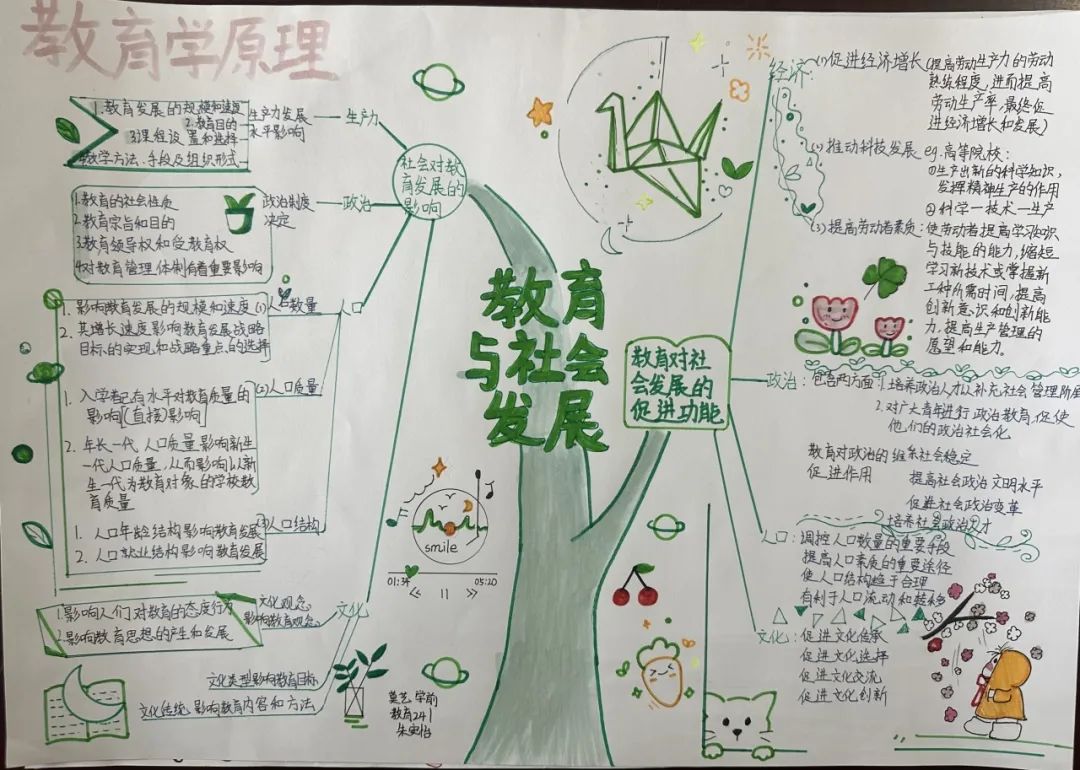 教育学原理
社会对教
育发展的
影响
生产力
生产力发展
水平影响
1.教育发展的规模和速度
2.教育目的
3.课程设置和选择
4.教学方法、手段及组织形式
政治
政治制度
决定
1.教育的社会性质
2.教育宗旨和目的
3.教育领导权和受教育权
4.对教育管理体制有着重要影响
人口
(1)人口数量
1. 影响教育发展的规模和速度
2. 其增长速度影响教育发展战略
目标的实现和战略重点的选择
(2)人口质量
1. 入学者已有水平对教育质量的
影响[直接]影响
2. 年长一代人口质量影响新生
一代人口质量,从而影响以新
生一代为教育对象的学校教
育质量
(3)人口结构
1. 人口年龄结构影响教育发展
2. 人口就业结构影响教育发展
文化
文化观念
影响教育观念
1.影响人们对教育的态度行为
2.影响教育思想的产生和发展
文化类型影响教育目标
文化传统影响教育内容和方法
教育
与社会
发展
smile
01:34
05:20
学前
教育241
教育对社
会发展的
促进功能
经济:
(1)促进经济增长(提高劳动生产力的劳动
熟练程度,进而提高
劳动生产率,最终促
进经济增长和发展)
(2)推动科技发展 eg.高等院校:
①生产出新的科学知识,
发挥精神生产的作用
②科学—技术—生产
(3)提高劳动者素质:使劳动者提高学习知识
与技能的能力,缩短
学习新技术或掌握新
工种所需时间,提高
创新意识和创新能
力,提高生产管理的
愿望和能力。
政治:包含两方面:1.培养政治人才以补充社会管理阶层
2.对广大青年进行政治教育,促使
他们的政治社会化
教育对政治的
促进作用
维系社会稳定
提高社会政治文明水平
促进社会政治变革
培养社会政治人才
人口:调控人口数量的重要手段
提高人口素质的重要途径
使人口结构趋于合理
有利于人口流动和转移
文化:促进文化传承
促进文化选择
促进文化交流
促进文化创新